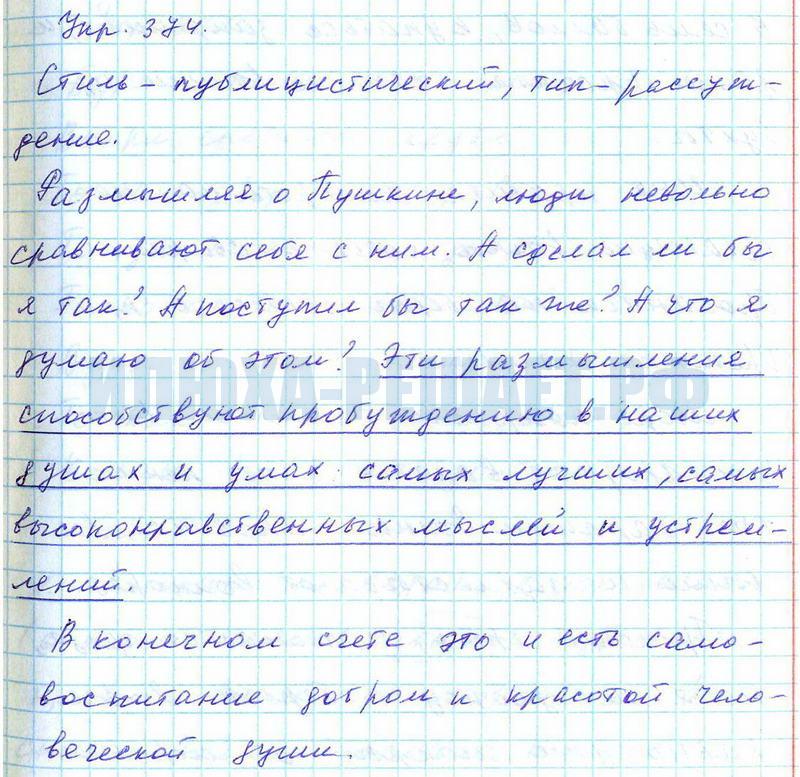 Упр. 374.
Стиль – публицистический, тип – рассуж-
дение.
Размышляя о Пушкине, люди невольно
сравнивают себя с ним. А сделал ли бы
я так? А поступил бы так же? А что я
думаю об этом? Эти размышления
способствуют пробуждению в наших
душах и умах самых лучших, самых
высоконравственных мыслей и устрем-
лений.
В конечном счете это и есть само-
воспитание добром и красотой чело-
веческой души.
ИЛЮХА-РЕШАЕТ.РФ